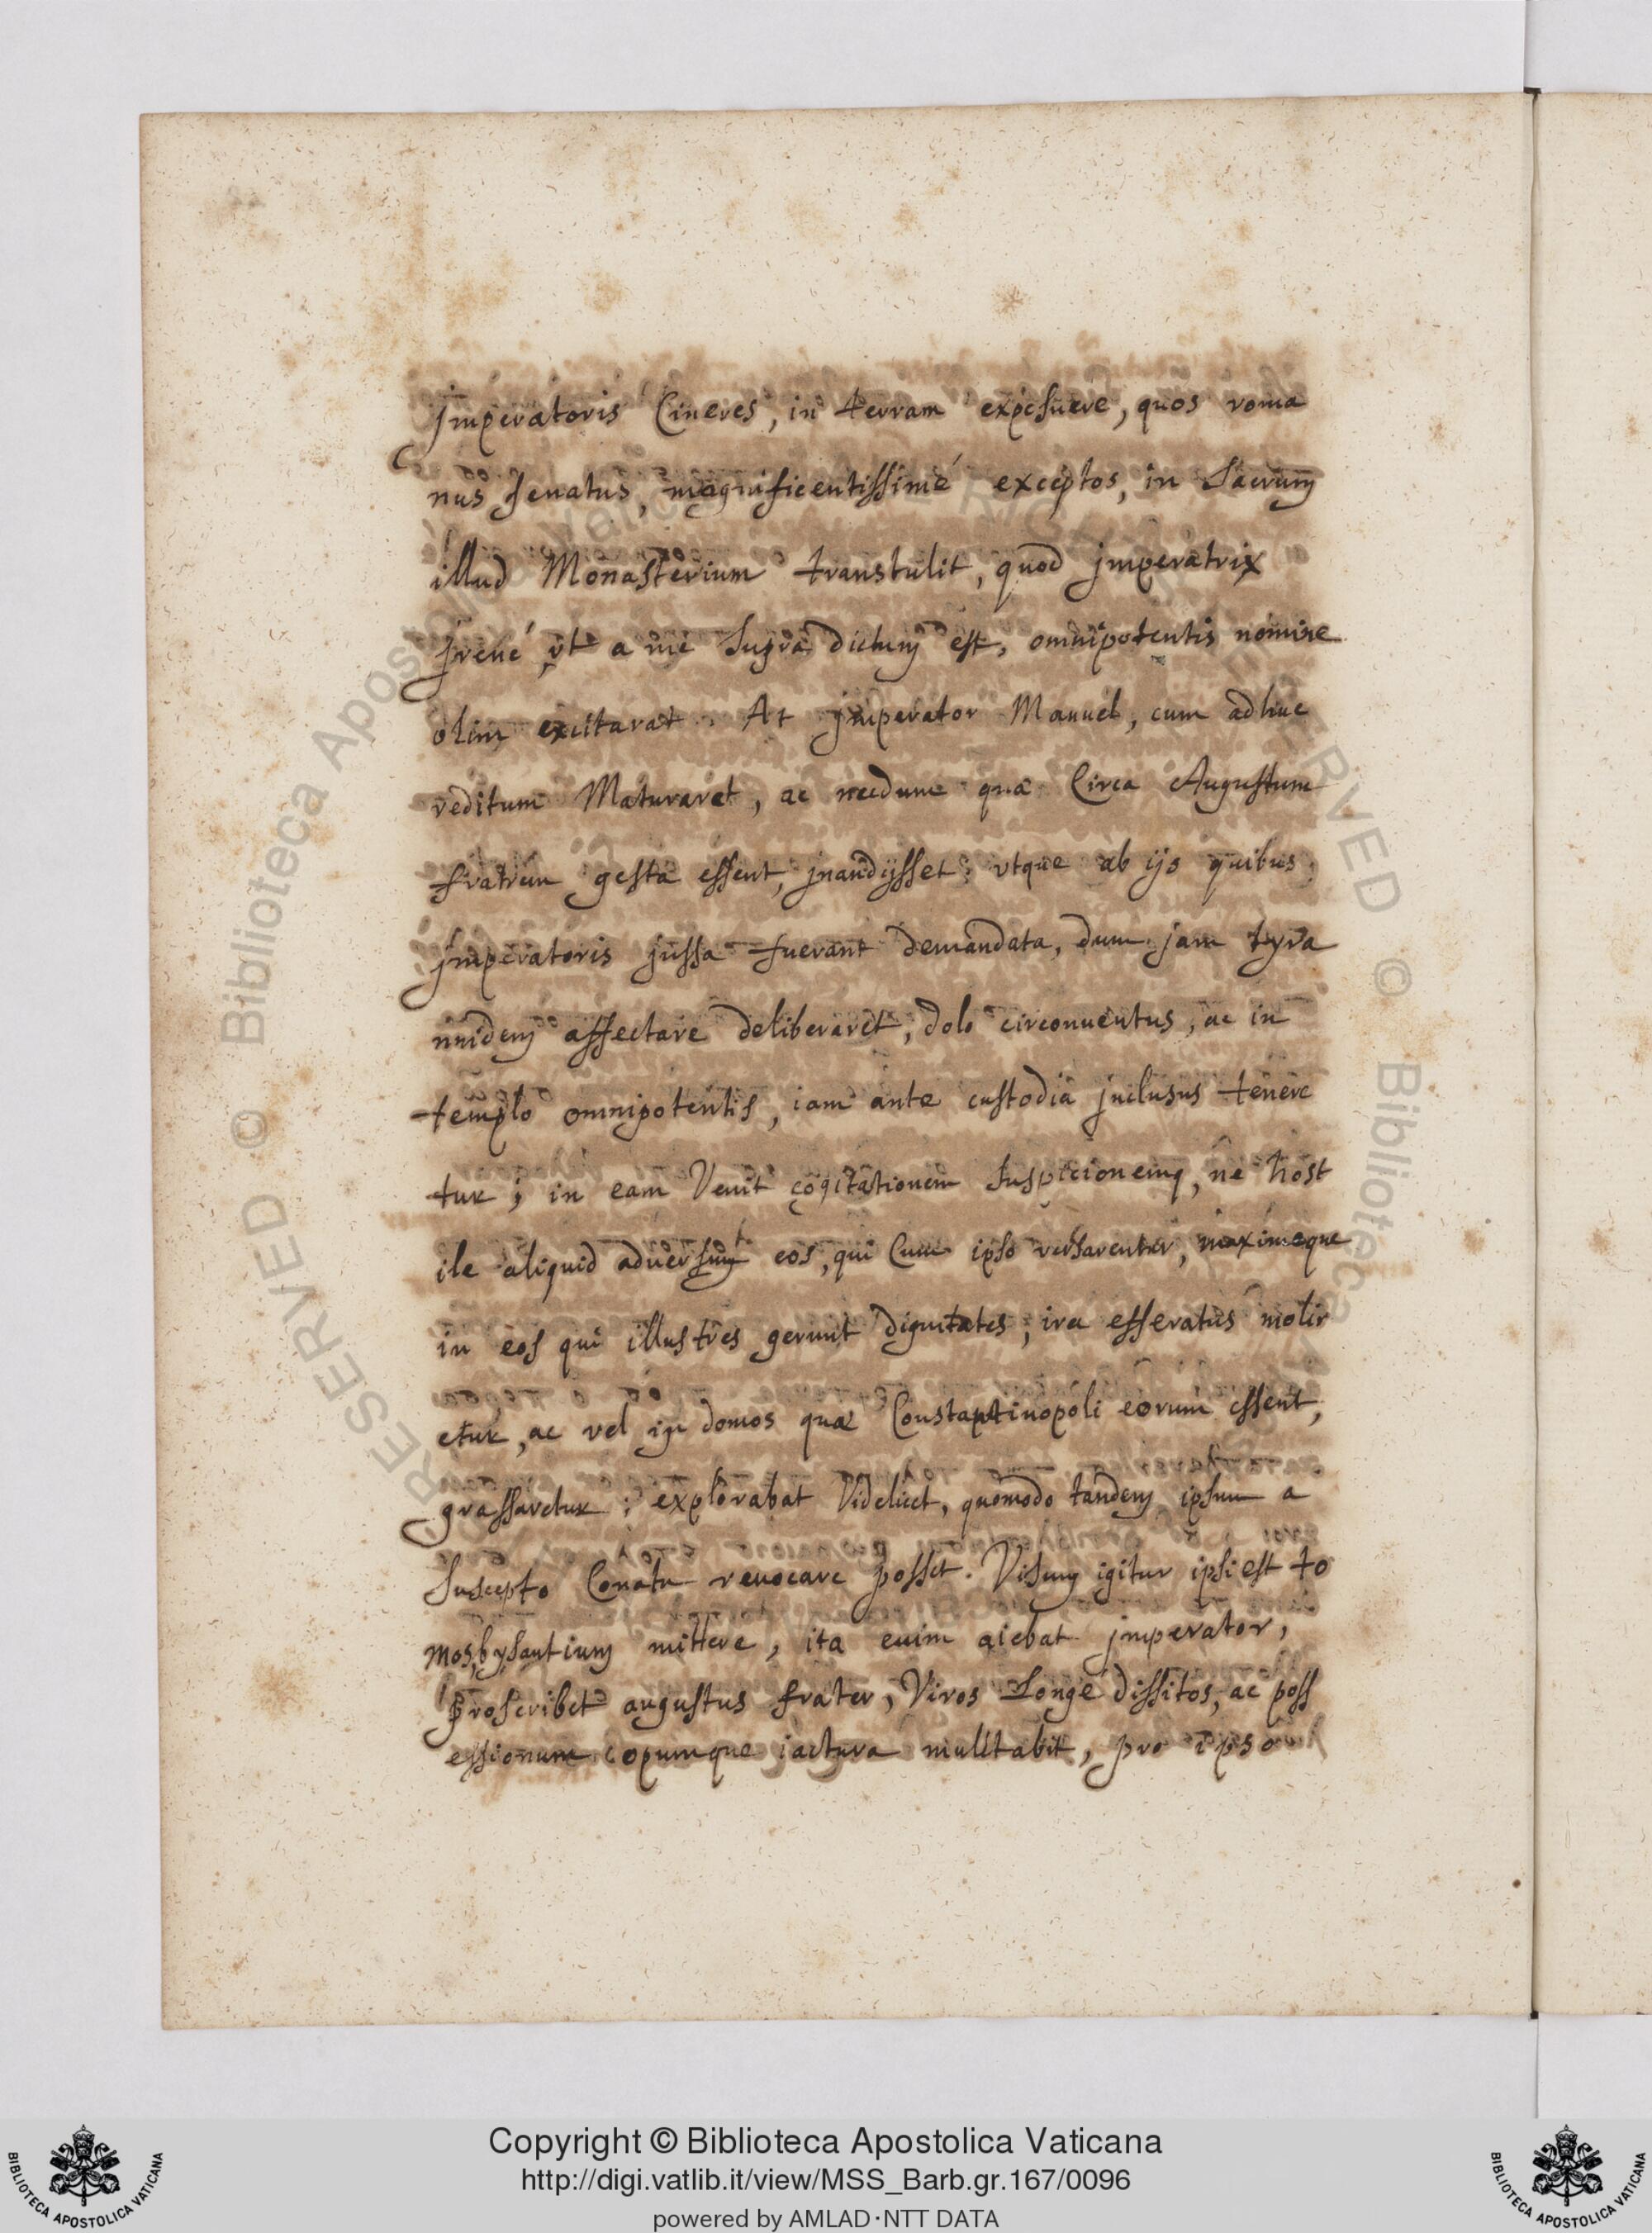 Imperatoris Cineres, in terram exposuere, quos roma
nus senatus, magnificentissimé exceptos, in Sacrum
illud Monasterium transtulit, quod imperatrix
Irené vt a me supra dictum est, omnipotentis nomine
olim excitarat. At imperator Manuel, cum adhuc
reditum Maturaret, ac necdum quæ Circa Augustum
fratrem gesta essent, inaudijsset; vtque ab ijs quibus
imperatoris jussa fuerant demandata, dum jam tyra
nnidem affectare deliberaret, dolo circonuentus, ac in
templo omnipotentis, iam ante custodia inclusus tenere
tur; in eam Venit cogitationem suspicionemq, ne host
ile aliquid aduersum eos, qui Cum ipso versarentur, maximeque
in eos qui illustres gerunt dignitates, ira efferatus molir
etur, ac vel in domos quæ Constantinopoli eorum essent,
grassaretur; explorabat Videlicet, quomodo tandem ipsum a
suscepto Conatu reuocare posset. Visum igitur ipsi est to
mos bysantium mittere, ita enim aiebat imperator,
Proscribet augustus frater, Viros Longé dissitos, ac poss
essionum copumque iactura mulctabit, pro ipso
Copyright © Biblioteca Apostolica Vaticana
http://digi.vatlib.it/view/MSS_Barb.gr.167/0096
powered by AMLAD·NTT DATA
BIBLIOTECA APOSTOLICA VATICANA
BIBLIOTECA APOSTOLICA VATICANA